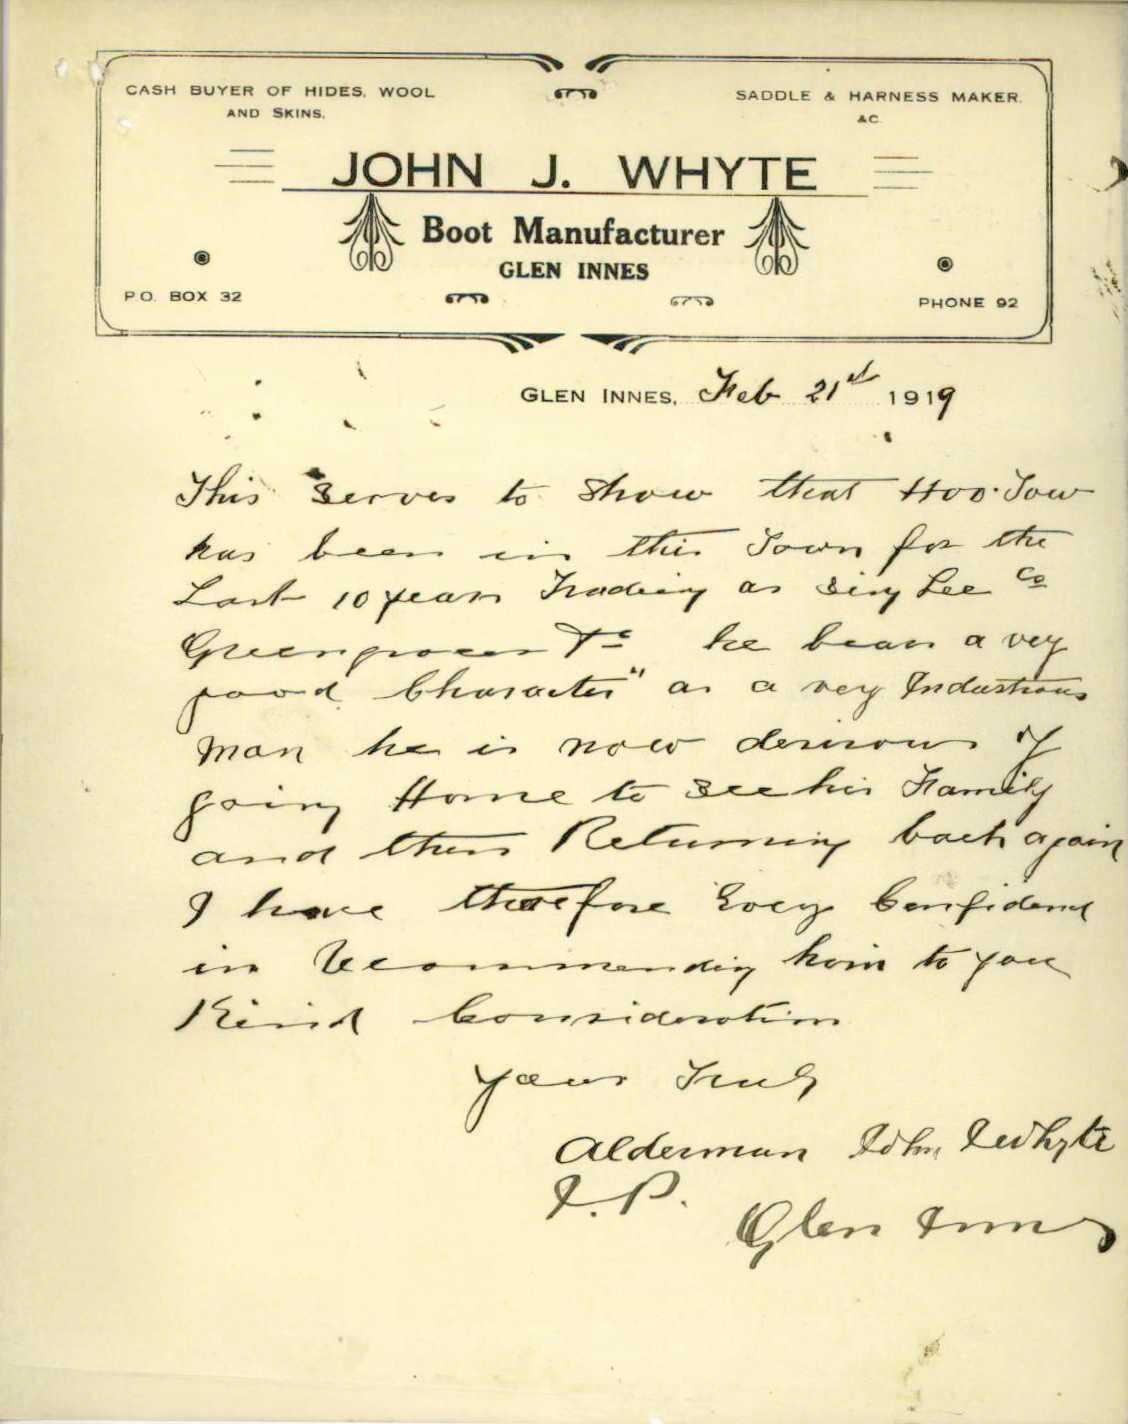 CASH BUYER OF HIDES, WOOL
AND SKINS.
SADDLE & HARNESS MAKER.
&C
JOHN J. WHYTE
Boot Manufacturer
GLEN INNES
P.O. BOX 32
PHONE 92
GLEN INNES, Feb 21st 1919
This serves to show that Hoo Tow
has been in this Town for the
Last 10 years Trading as Sing Lee Co
Greengrocer &c he bears a very
good Character" as a very Industrious
man he is now desirous of
going Home to see his Family
and then Returning back again
I have therefore Every Confidence
in Recommending him to your
Kind Consideration
Yours Truly
Alderman John J Whyte
J.P.
Glen Innes